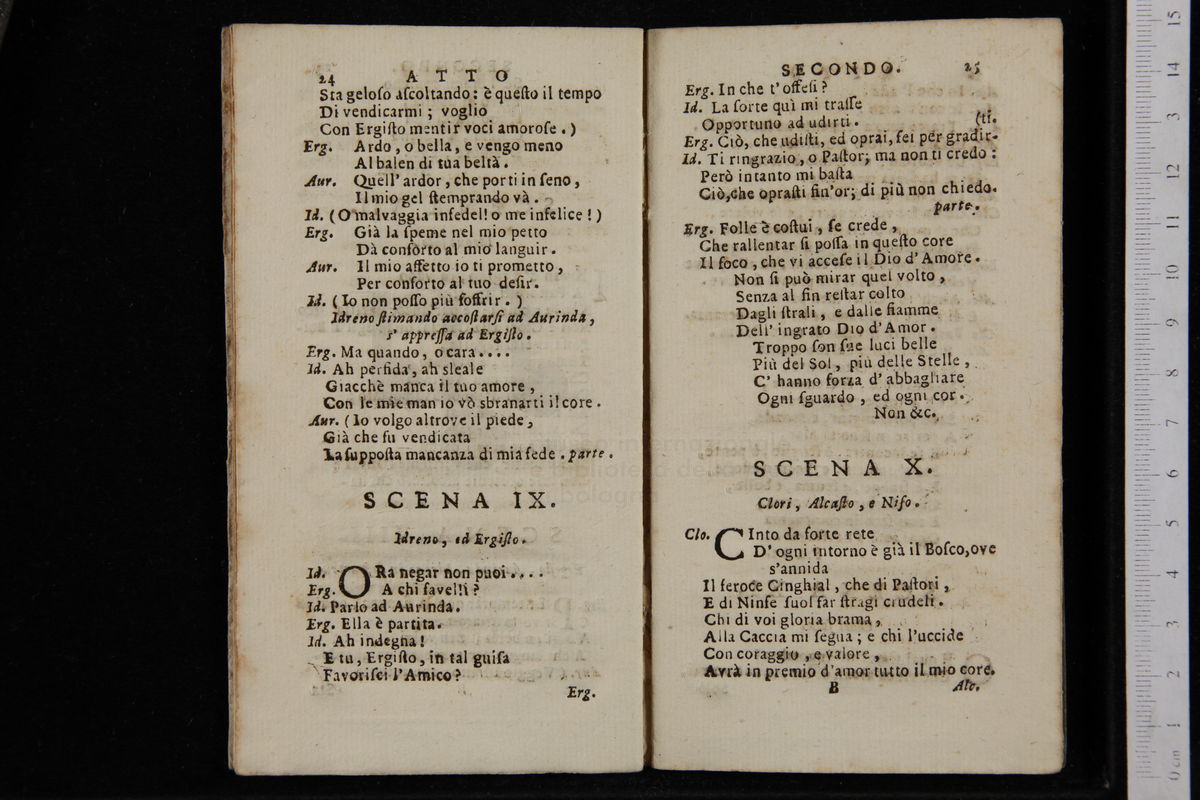 24 ATTO
Sta geloso ascoltando: è questo il tempo
Di vendicarmi; voglio
Con Ergisto mentir voci amorose.)
Erg. Ardo, o bella, e vengo meno
Al balen di tua beltà.
Aur. Quell' ardor, che porti in seno,
Il mio gel stemprando và.
Id. (O malvaggia infedel! o me infelice!)
Erg. Già la speme nel mio petto
Dà conforto al mio languir.
Aur. Il mio affetto io ti prometto,
Per conforto al tuo desir.
Id. (Io non posso più soffrir.)
Idreno stimando accostarsi ad Aurinda,
s' appressa ad Ergisto.
Erg. Ma quando, o cara....
Id. Ah perfida, ah sleale
Giacchè manca il tuo amore,
Con le mie man io vò sbranarti il core.
Aur. (Io volgo altrove il piede,
Già che fu vendicata
La supposta mancanza di mia fede. parte.
SCENA IX.
Idreno, ed Ergisto.
Id. ORa negar non puoi....
Erg. A chi favelli?
Id. Parlo ad Aurinda.
Erg. Ella è partita.
Id. Ah indegna!
E tu, Ergisto, in tal guisa
Favorisci l'Amico?
Erg.
SECONDO. 25
Erg. In che t' offesi?
Id. La sorte quì mi trasse
Opportuno ad udirti. (ti.
Erg. Ciò, che udisti, ed oprai, fei per gradir-
Id. Ti ringrazio, o Pastor; ma non ti credo:
Però intanto mi basta
Ciò, che oprasti fin'or; di più non chiedo.
parte.
Erg. Folle è costui, se crede,
Che rallentar si possa in questo core
Il foco, che vi accese il Dio d' Amore.
Non si può mirar quel volto,
Senza al fin restar colto
Dagli strali, e dalle fiamme
Dell' ingrato Dio d' Amor.
Troppo son sue luci belle
Più del Sol, più delle Stelle,
C' hanno forza d' abbagliare
Ogni sguardo, ed ogni cor.
Non &c.
SCENA X.
Clori, Alcasto, e Niso.
Clo. CInto da forte rete
D' ogni intorno è già il Bosco, ove
s'annida
Il feroce Cinghial, che di Pastori,
E di Ninfe suol far stragi crudeli.
Chi di voi gloria brama,
Alla Caccia mi segua; e chi l'uccide
Con coraggio, e valore,
Avrà in premio d'amor tutto il mio core.
B Alc.
15
14
13
12
11
10
9
8
7
6
5
4
3
2
1
0 cm